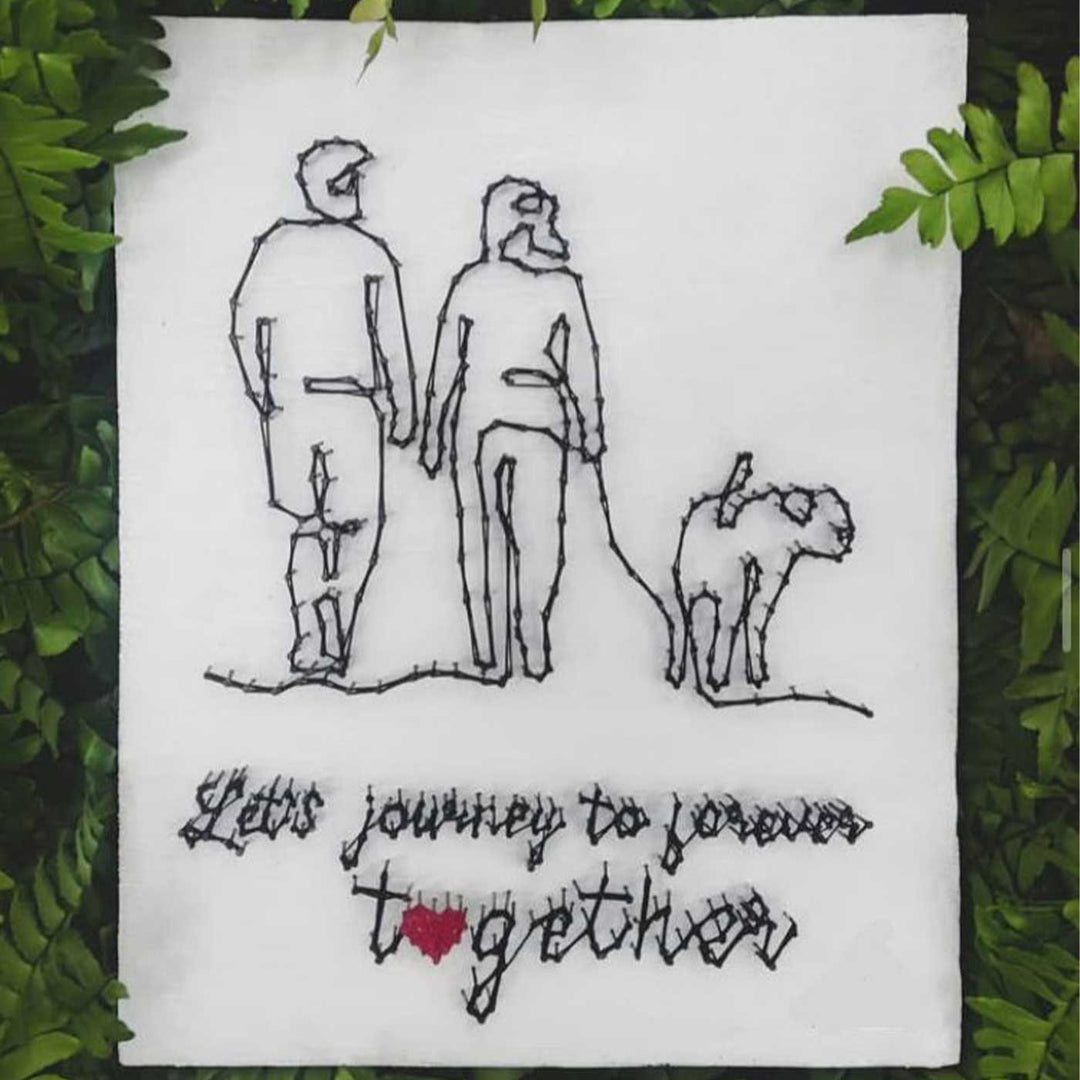 Let's journey to forever
together